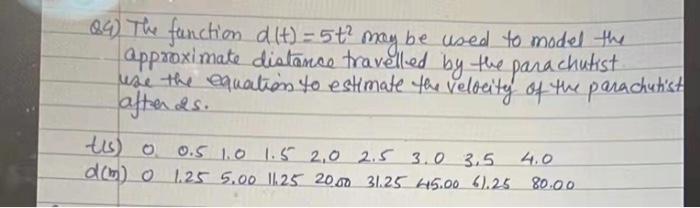 Q4) The function d(t) = 5t² may be used to model the
approximate distance travelled by the parachutist
use the equation to estimate the velocity of the parachutist
after 2s.
t(s) 0 0.5 1.0 1.5 2.0 2.5 3.0 3.5 4.0
d(m) 0 1.25 5.00 11.25 20.00 31.25 45.00 61.25 80.00